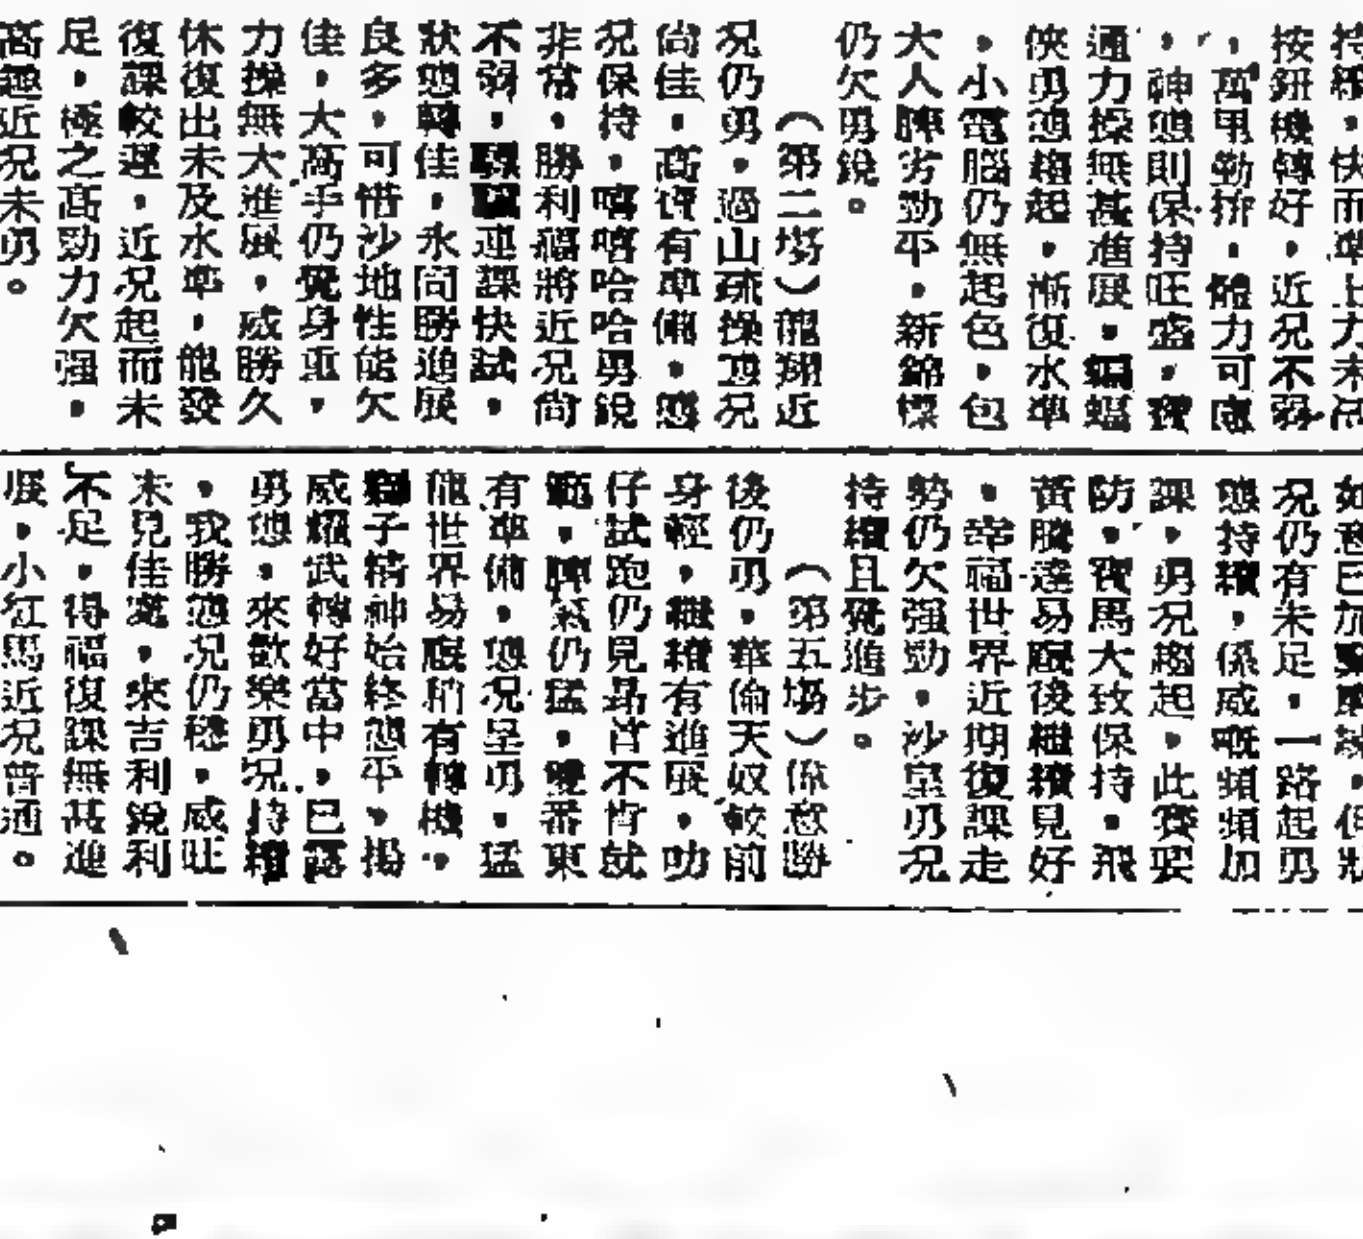 持續，快而準上力未
按鈕機轉好，近況不弱
，萬甲勒拚，體力可應
，神態則保持旺盛，寶
通力操無甚進展，蝙蝠
俠勇速趨起，漸復水準
，小電腦仍無起色，包
大人脾劣勁平，新錦標
仍欠勇銳。
（第二場）龍翔近
況仍勇，過山疏操速況
尚佳，高寶有準備，態
況保持，嘻嘻哈哈勇銳
非常，勝利福將近況尚
不弱，連課快試，
狀態轉佳，永同勝進展
良多，可惜沙地性能欠
佳，大高手仍覺身重，
力操無大進展，威勝久
休復出未及水準，龍發
復課較遲，近況起而未
足，極之高勁力欠强，
高趣近況未勇。
如意已加，但狀
況仍有未足，一路起勇
態持續，係威嘅頻頻加
課，勇況趨起，此賽要
防，寶馬大致保持，飛
黃騰達易腿後繼續見好
，幸福世界近期復課走
勢仍欠强勁，沙皇勇況
持續且覺進步。
（第五場）係意勝
後仍勇，華倫天奴較前
身輕，繼續有進展，叻
仔試跑仍見昂首不肯就
範，脾氣仍猛，雙番東
有準備，態況呈勇，猛
龍世界易腿前有轉機，
獅子精神始終態平，揚
威耀武轉好當中，已露
勇態，來歡樂勇況持續
，我勝態況仍穩，威旺
未見佳處，來吉利銳利
不足，得福復課無甚進
展，小紅馬近況普通。